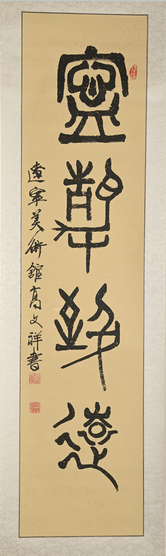 寧靜致遠
遼寧美術館高文祥書